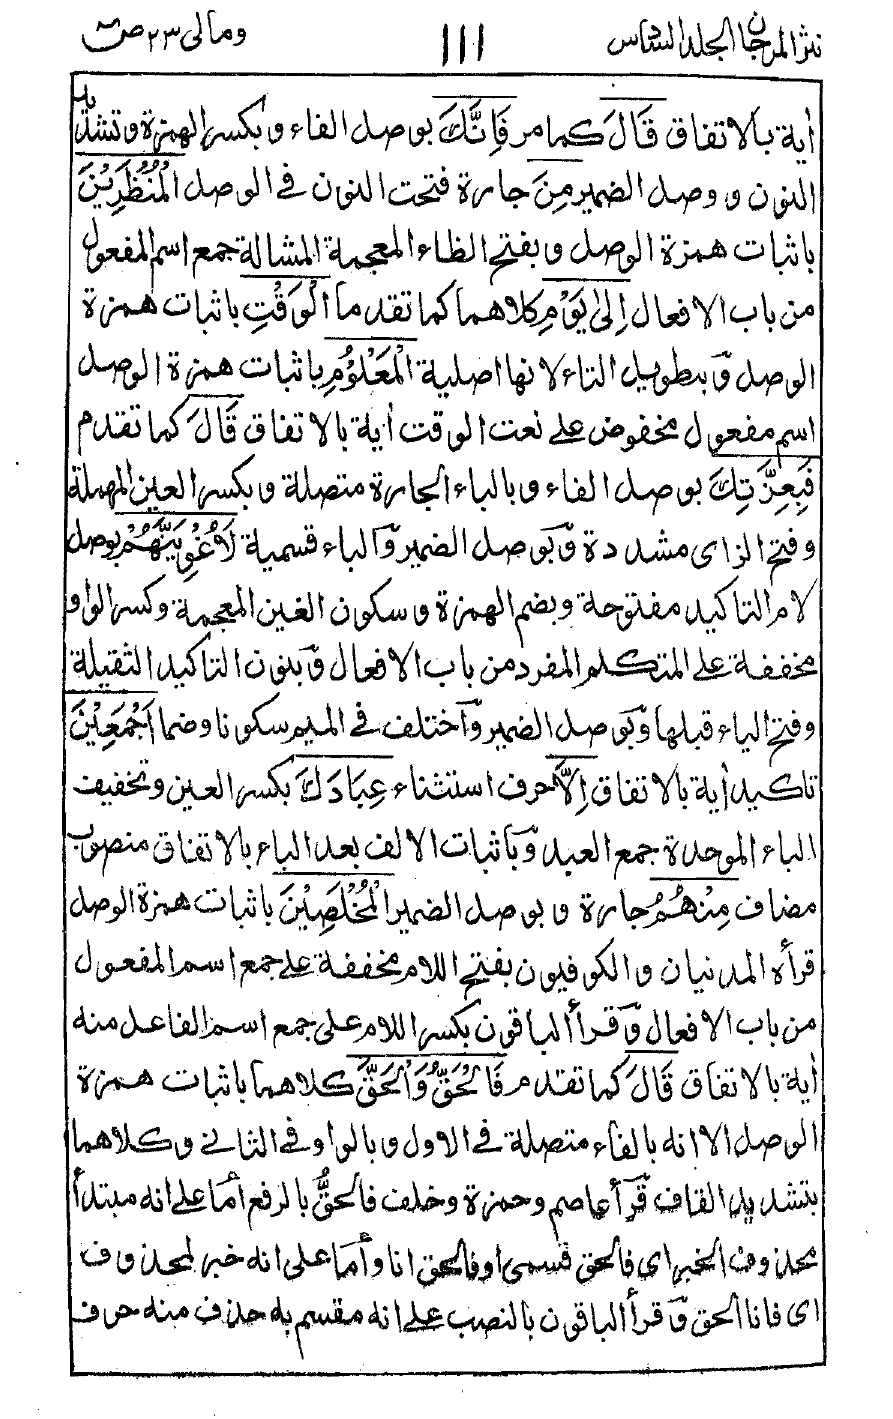 نثر المرجان الجلد السادس ١١١ ومالى ٢٣ ص
أية بالاتفاق قَالَ كما مر فَإِنَّكَ بوصل الفاء وبكسر الهمزة وتشديد
النون ووصل الضمير مِنَ جارة فتحت النون فى الوصل الْمُنْظَرِيْنَ
باثبات همزة الوصل وبفتح الظاء المعجمة المشالة جمع اسم المفعول
من باب الافعال إِلىٰ يَوْمِ كلاهما كما تقدما الْوَقْتِ باثبات همزة
الوصل وبتطويل التاء لانها اصلية الْمَعْلُوْمِ باثبات همزة الوصل
اسم مفعول مخفوض على نعت الوقت أية بالاتفاق قَالَ كما تقدم
فَبِعِزَّتِكَ بوصل الفاء وبالباء الجارة متصلة وبكسر العين المهملة
وفتح الزاى مشددة وبوصل الضمير والباء قسمية لَأُغْوِيَنَّهُمْ بوصل
لام التاكيد مفتوحة وبضم الهمزة وسكون الغين المعجمة وكسر الواو
مخففة على المتكلم المفرد من باب الافعال وبنون التاكيد الثقيلة
وفتح الياء قبلها وبوصل الضمير واختلف فى الميم سكونا وضما أَجْمَعِيْنَ
تاكيد أية بالاتفاق إِلَّا حرف استثناء عِبَادَكَ بكسر العين وتخفيف
الباء الموحدة جمع العبد وباثبات الالف بعد الباء بالاتفاق منصوب
مضاف مِنْهُمُ جارة وبوصل الضمير الْمُخْلَصِيْنَ باثبات همزة الوصل
قرأه المدنيان والكوفيون بفتح اللام مخففة على جمع اسم المفعول
من باب الافعال وقرأ الباقون بكسر اللام على جمع اسم الفاعل منه
أية بالاتفاق قَالَ كما تقدم فَالْحَقُّ وَالْحَقَّ كلاهما باثبات همزة
الوصل الا انه بالفاء متصلة فى الاول وبالواو فى الثانى وكلاهما
بتشديد القاف قرأ عاصم وحمزة وخلف فالحقُّ بالرفع أما على انه مبتدأ
محذوف الخبر اى فالحق قسمى او فالحق انا وأما على انه خبر لمحذوف
اى فانا الحق وقرأ الباقون بالنصب على انه مقسم به حذف منه حرف